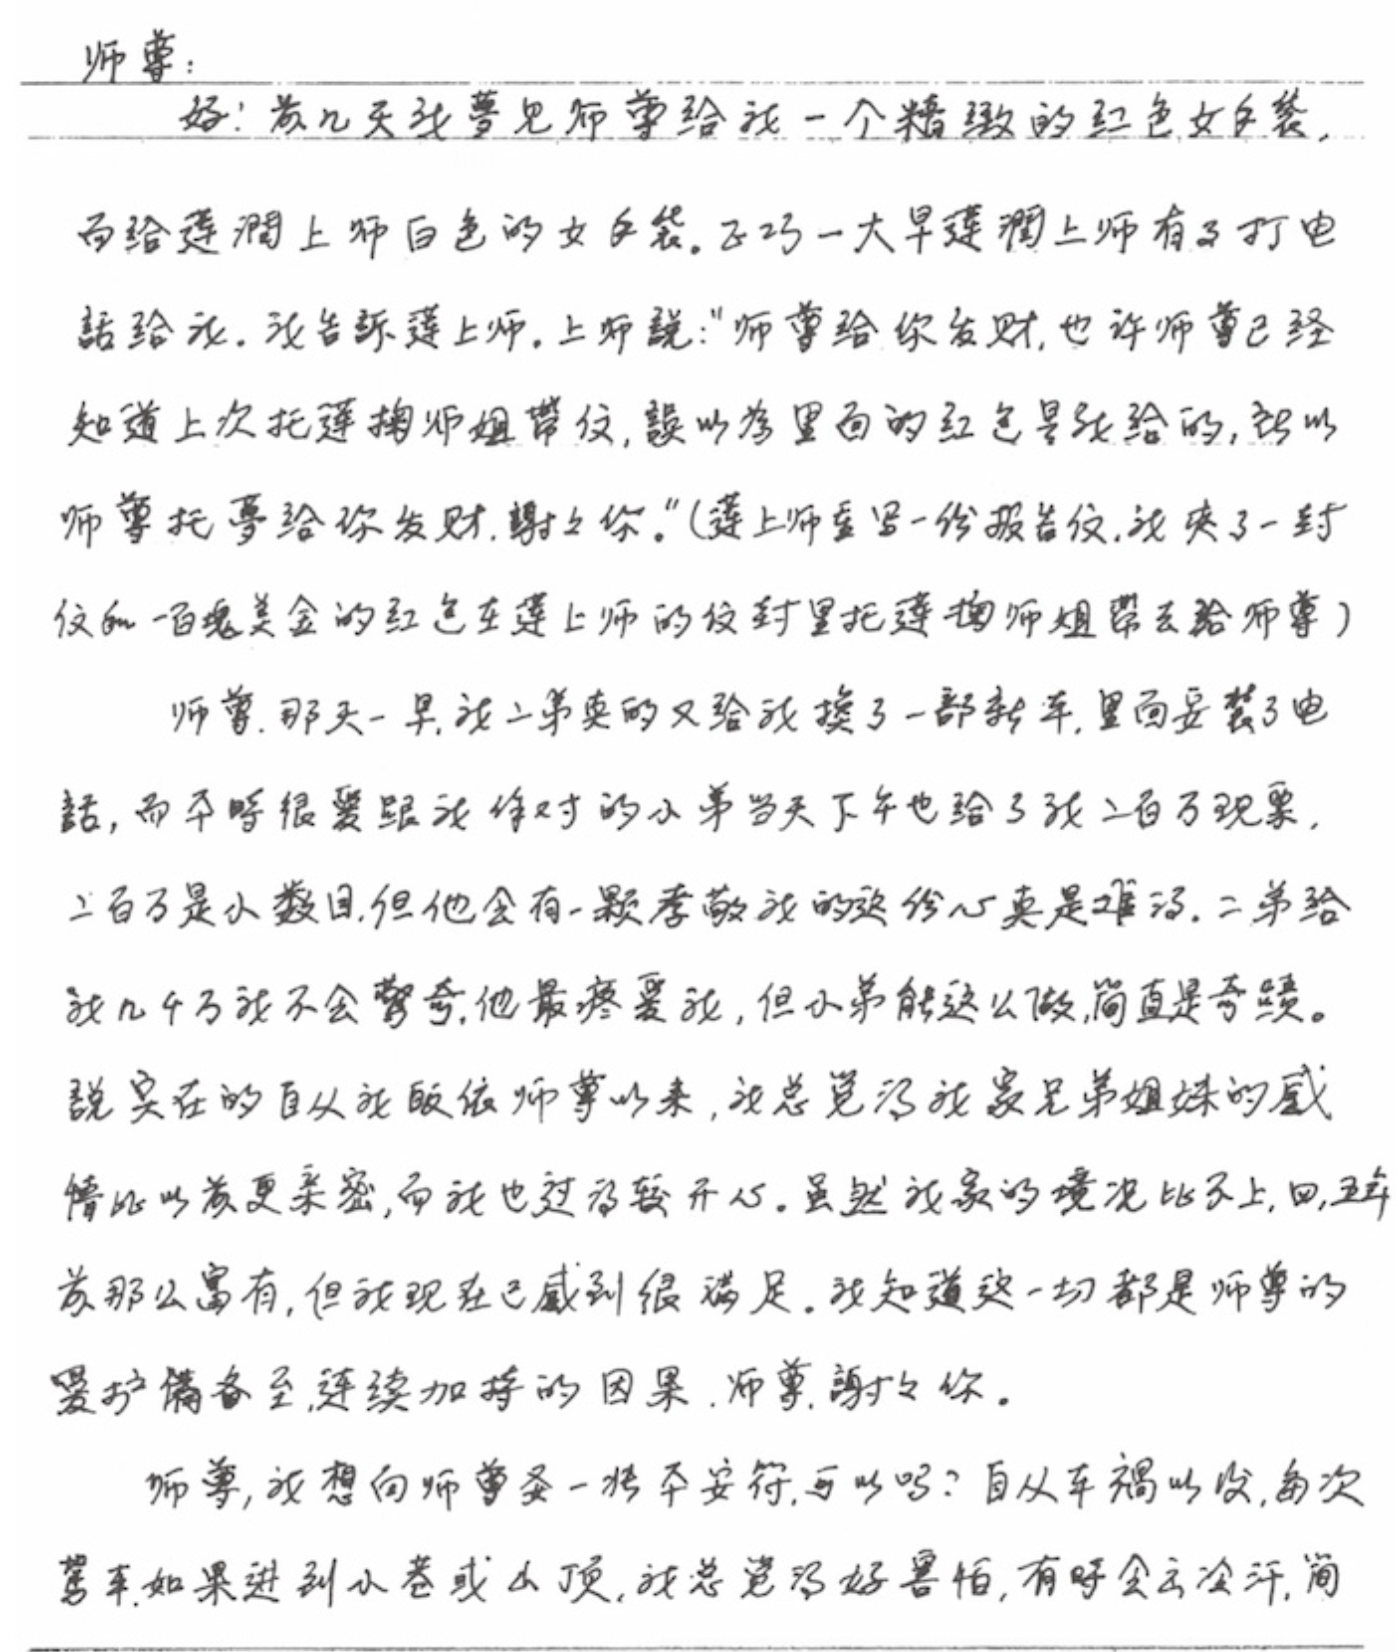 师尊：
好！前几天我夢見师尊给我一个精緻的红色女手袋，
而给蓮潤上师白色的女手袋。正巧一大早蓮潤上师有事打电
話给我。我告訴蓮上师。上师說："师尊给你发财，也许师尊已经
知道上次托蓮掬师姐帶信，誤以為里面的红包是我给的，所以
师尊托夢给你发财，謝々你。"（蓮上师要写一份报告信，我夹了一封
信和一百塊美金的红包在蓮上师的信封里托蓮掬师姐帶去給师尊）
师尊，那天一早，我二弟真的又给我換了一部新车，里面安裝了电
話，而平時很爱跟我作对的小弟当天下午也给了我二百万现票，
二百万是小數目，但他会有一颗孝敬我的这份心真是难得。二弟给
我几千万我不会驚奇，他最疼爱我，但小弟能这么做，简直是奇蹟。
說实在的自从我皈依师尊以来，我总覚得我家兄弟姐妹的感
情比以前更亲密，而我也过得较开心。虽然我家的境况比不上，四，五年
前那么富有，但我现在已感到很满足。我知道这一切都是师尊的
爱护備备至，連续加持的因果．师尊，謝々你。
师尊，我想向师尊要一张平安符，可以吗？自从车禍以后，每次
驾车，如果进到小巷或山顶，我总覚得好害怕，有時会出冷汗，简